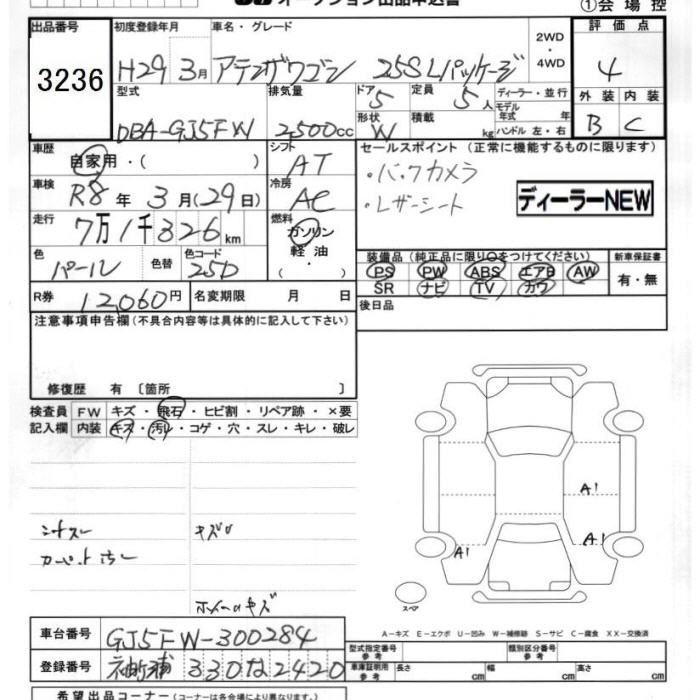 オークション出品申込書 ①会場控
出品番号 初度登録年月 車名・グレード 2WD・4WD 評価点
3236 H29年3月 アテンザワゴン 25S Lパッケージ 4
型式 排気量 ドア 5 定員 5人 ディーラー・並行 外装 内装
DBA-GJ5FW 2,500cc 形状 W 積載 kg モデル年式 年 ハンドル 左・右 B C
車歴 自家用・( ) シフト AT セールスポイント (正常に機能するものに限ります)
車検 R8年3月(29日) 冷房 AC ・バックカメラ
・レザーシート ディーラーNEW
走行 7万1千326km 燃料 ガソリン・軽油・( )
色 パール 色替 色コード 25D
装備品(純正品に限り○をつけてください) 新車保証書
PS PW ABS エアB AW 有・無
SR ナビ TV カワ
R券 12,060円 名変期限 月 日 後日品
注意事項申告欄(不具合内容等は具体的に記入して下さい)
修復歴 有〔箇所 〕
検査員 FW キズ・飛石・ヒビ割・リペア跡・×要
記入欄 内装 キズ・汚レ・コゲ・穴・スレ・キレ・破レ
シートスレ キズU
カーペット汚レ
ホイールキズ
A1
A1
A1
スペア
A-キズ E-エクボ U-凹み W-補修跡 S-サビ C-腐食 XX-交換済
車台番号 GJ5FW-300284
登録番号 袖ヶ浦 330 な 2420
型式指定番号 参考 類別区分番号 参考
車庫証明用 参考 長さ cm 幅 cm 高さ cm
希望出品コーナー(コーナーは各会場により異なります。)